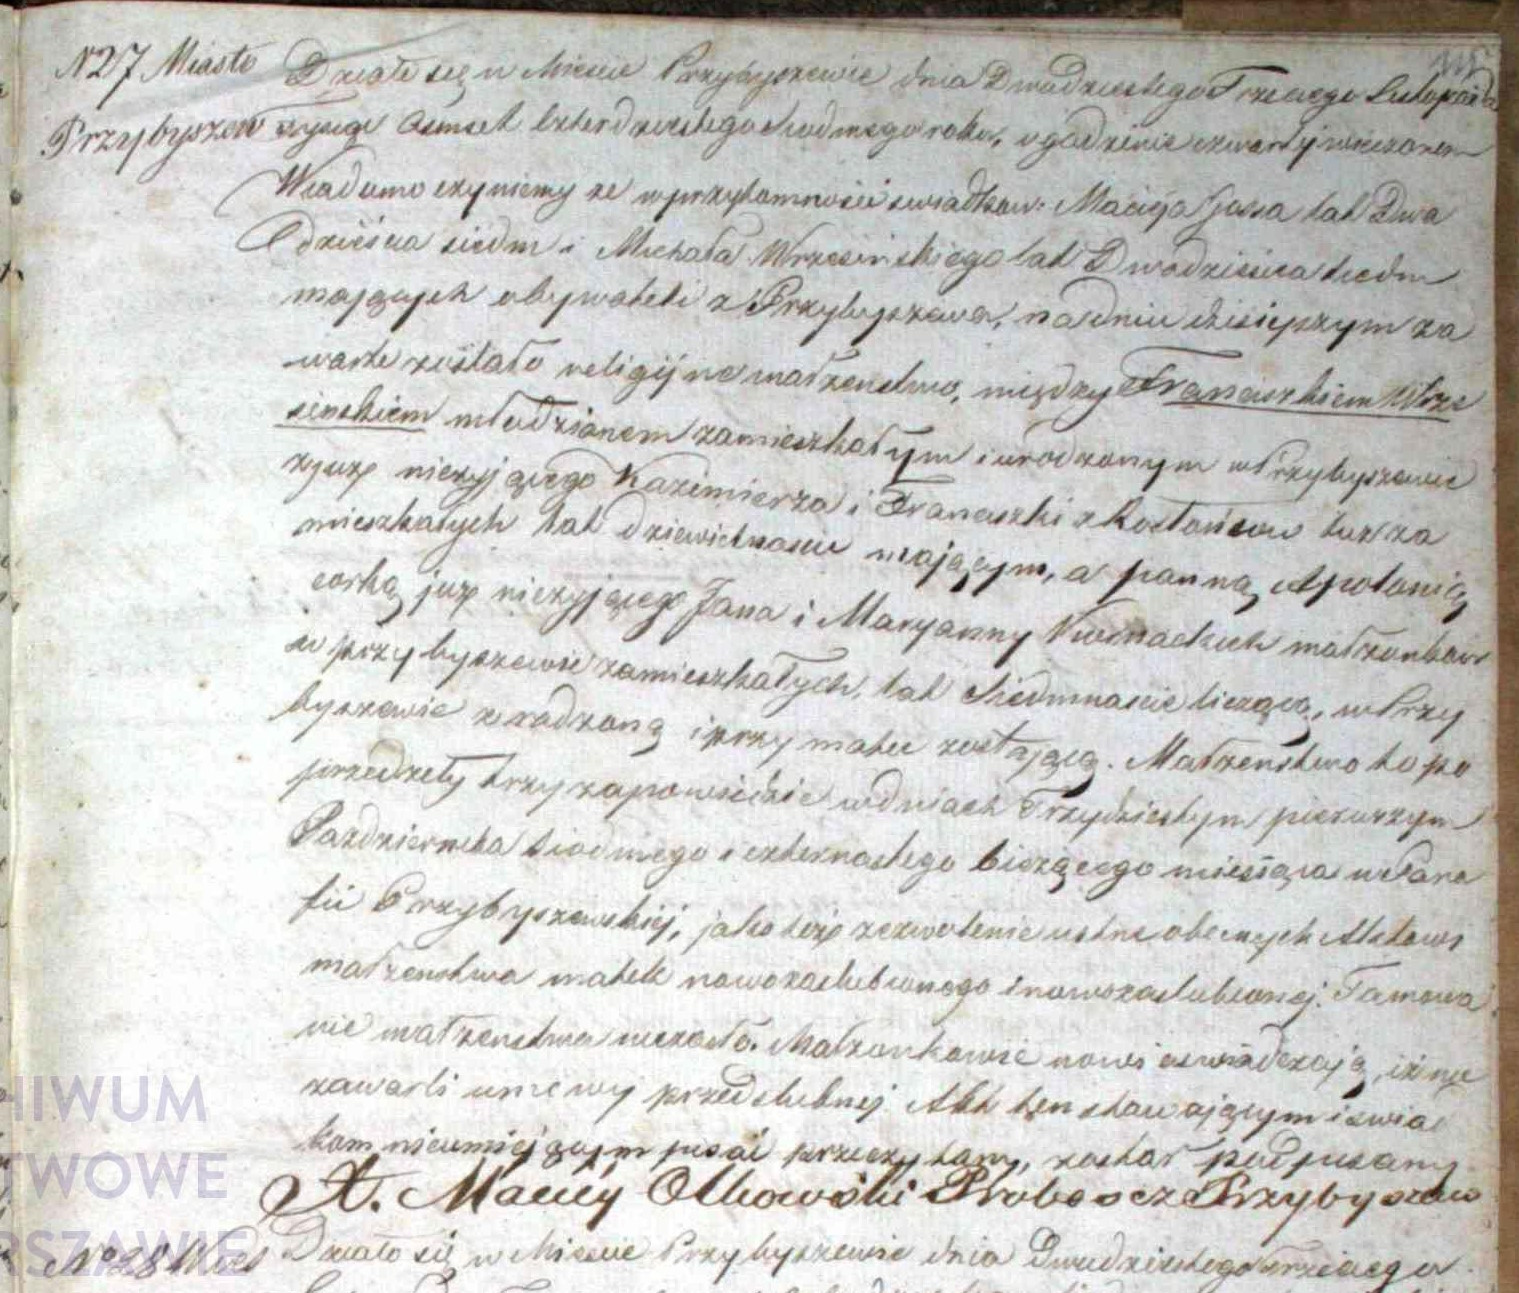 N 27 Miasto Działo się w Mieście Przybyszewie dnia Dwudziestego Trzeciego Listopada
Przybyszew tysiąc Osmset Czterdziestego Siodmego roku, o godzinie czwartej wieczorem
Wiadomo czyniemy ze w przytomności swiadkow: Macieja lat Dwa
dzieścia siedm i Michała Wrzesińskiego lat Dwadzieścia siedm
mających obywateli z Przybyszewa, na dniu dzisiejszym za
warte zostało religijne małżenstwo, między Franciszkiem Wrze
sinskiem młodzianem zamieszkałym i urodzonym w Przybyszewie
z już nieżyjącego Kazimierza i Franciszki z tuż za
mieszkałych lat dziewietnascie mającym, a panną Apolonią
corką już nieżyjącego Jana i Maryanny małżonkow
w przybyszewie zamieszkałych, lat Siedmnascie liczącą, w Przy
byszewie zrodzoną i przy matce zostającą. Małżenstwo to po
przedzieły trzy zapowiedzie w dniach Trzydziestym pierwszym
Pazdziernika siodmego i czternastego bieżącego miesiąca w Para
fii Przybyszewskiej, jako też zezwolenie ustne obecnych Aktowi
małżenstwa matek nowozaslubionego i nowozaslubionej. Tamowa
nie małżenstwa niezaszło. Małżonkowie nowi oswiadczają, iż nie
zawarli umowy przedslubnej. Akt ten stawającym i swiad
kom nieumiejącym pisać przeczytany, został podpisany
X. Maciej Olkowski Proboszcz Przybyszew
No 28 Wies Działo się w Mieście Przybyszewie dnia Dwudziestego trzeciego
HIWUM
TWOWE
RSZAWIE